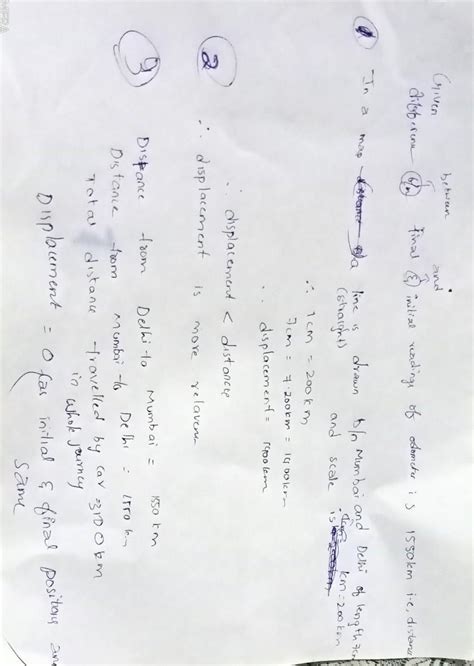 Given difference b/n final & initial readings of odometer is 1550km i.e, distance
between and
① In a map a line is drawn b/n Mumbai and Delhi of length 7cm
(straight) and scale is 1cm = 200km
∴ 1cm = 200km
7cm = 7.200km = 1400km
∴ displacement = 1400km
② ∴ displacement < distance
∴ displacement is more relavene
③ Distance from Delhi to Mumbai = 1550 km
Distance from Mumbai to Delhi = 1550 km
Total distance travelled by car = 3100km
in whole journey
Displacement = 0 (as initial & final positions are
same